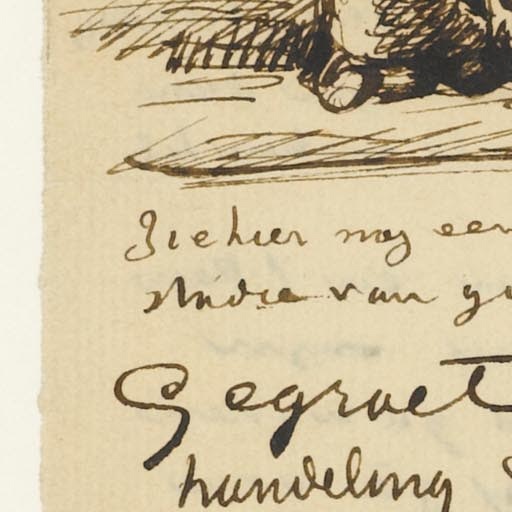 Zie hier nog een
studie van
Gegroet
handeling